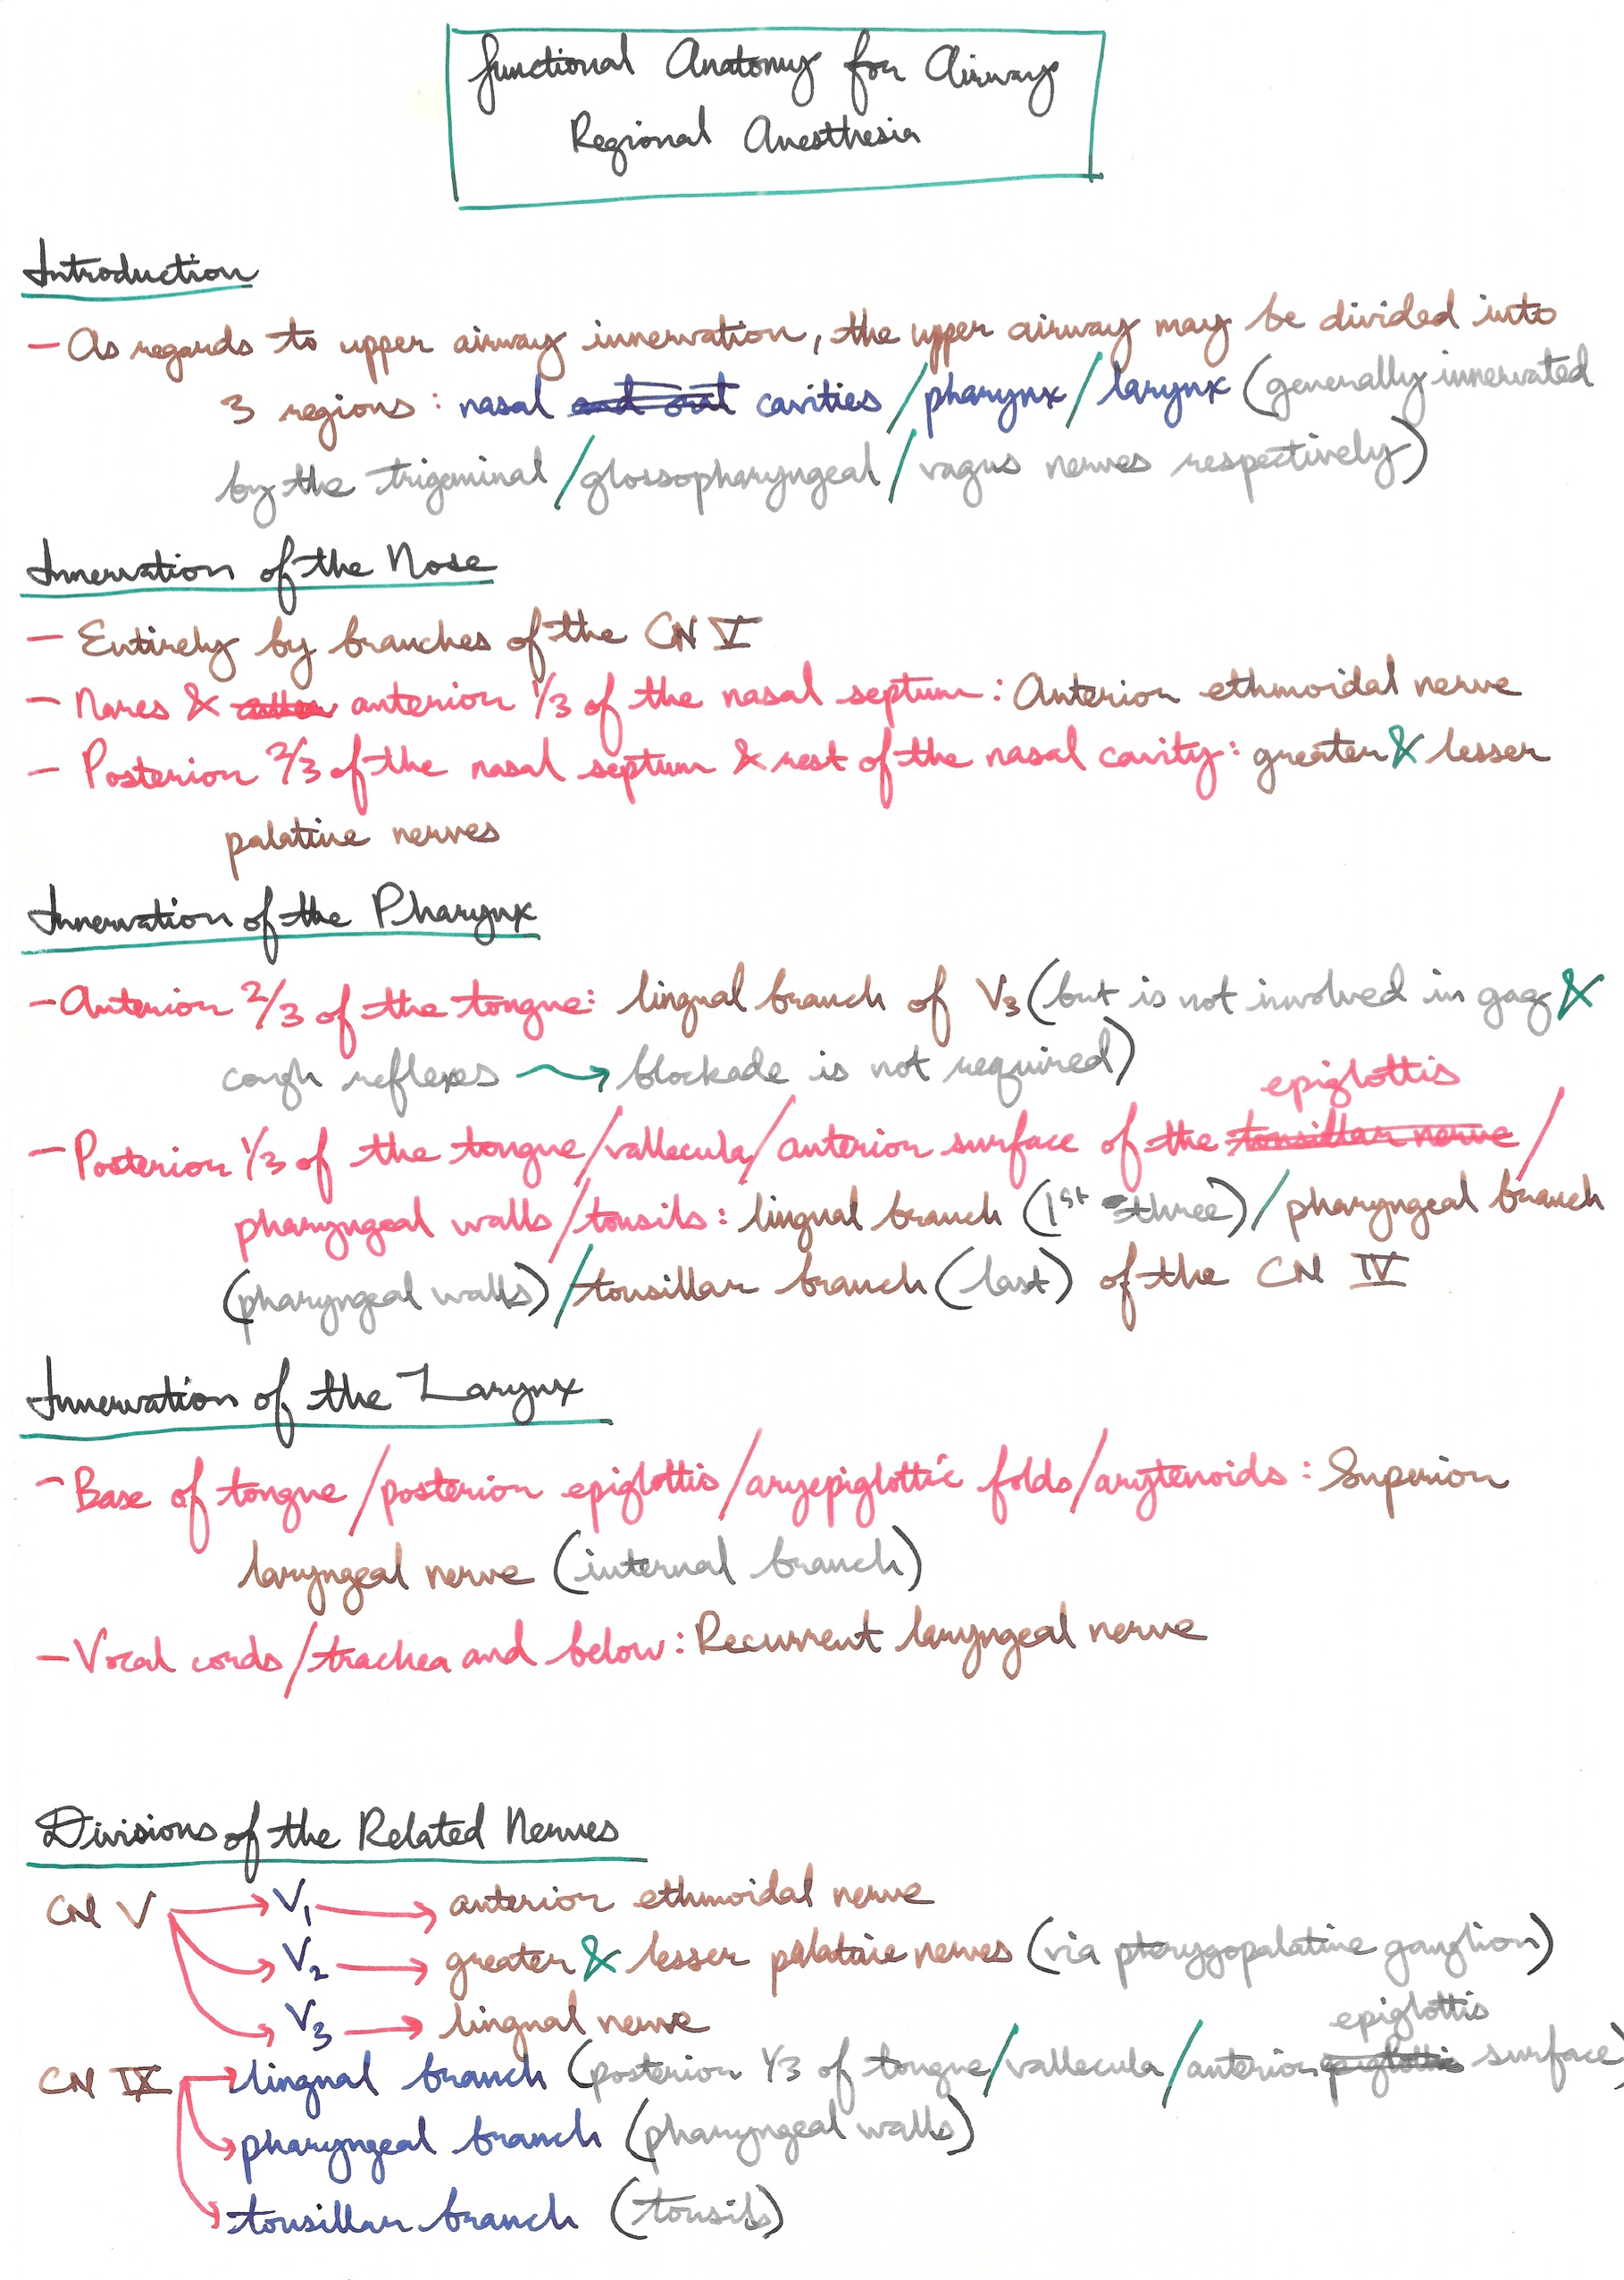 Functional Anatomy for Airway
Regional Anesthesia
Introduction
- As regards to upper airway innervation, the upper airway may be divided into
3 regions: nasal and oral cavities / pharynx / larynx (generally innervated
by the trigeminal / glossopharyngeal / vagus nerves respectively)
Innervation of the Nose
- Entirely by branches of the CN V
- Nares & anterior 1/3 of the nasal septum: Anterior ethmoidal nerve
- Posterior 2/3 of the nasal septum & rest of the nasal cavity: greater & lesser
palatine nerves
Innervation of the Pharynx
- Anterior 2/3 of the tongue: lingual branch of V3 (but is not involved in gag &
cough reflexes → blockade is not required)
epiglottis
- Posterior 1/3 of the tongue / vallecula / anterior surface of the tonsillar nerve /
pharyngeal walls / tonsils: lingual branch (1st three) / pharyngeal branch
(pharyngeal walls) / tonsillar branch (last) of the CN IV
Innervation of the Larynx
- Base of tongue / posterior epiglottis / aryepiglottic folds / arytenoids: Superior
laryngeal nerve (internal branch)
- Vocal cords / trachea and below: Recurrent laryngeal nerve
Divisions of the Related Nerves
CN V → V1 → anterior ethmoidal nerve
→ V2 → greater & lesser palatine nerves (via pterygopalatine ganglion)
→ V3 → lingual nerve
epiglottis
CN IX → lingual branch (posterior 1/3 of tongue / vallecula / anterior epiglottis surface)
→ pharyngeal branch (pharyngeal walls)
→ tonsillar branch (tonsils)